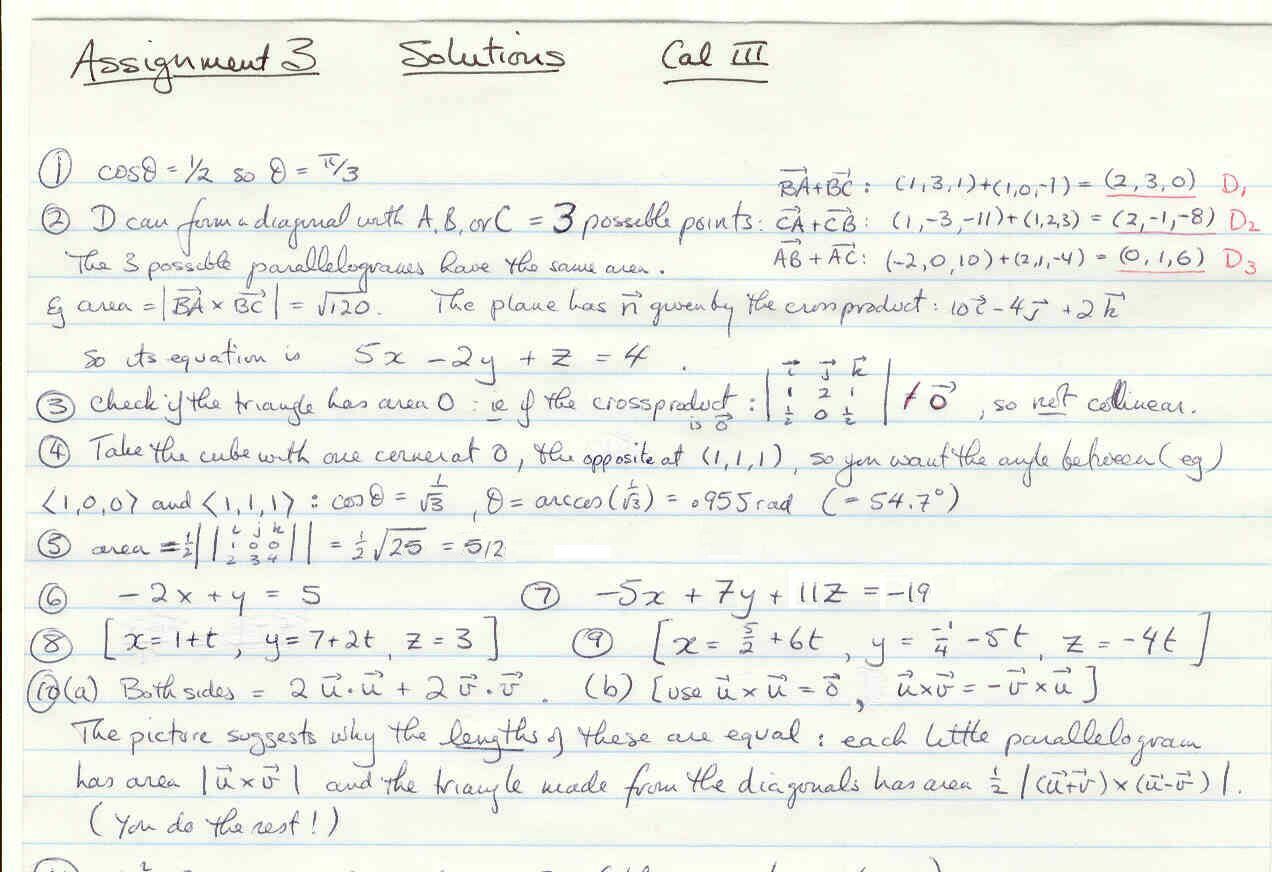 Assignment 3 Solutions Cal III
① cosθ = 1/2 so θ = π/3
BA+BC : (1,3,1)+(1,0,-1) = (2,3,0) D₁
② D can form a diagonal with A, B, or C = 3 possible points: CA+CB : (1,-3,-11)+(1,2,3) = (2,-1,-8) D₂
The 3 possible parallelograms have the same area. AB + AC : (-2,0,10)+(2,1,-4) = (0,1,6) D₃
Eg area = |BA × BC| = √120. The plane has n⃗ given by the crossproduct: 10i⃗ - 4j⃗ + 2k⃗
So its equation is 5x - 2y + z = 4.
③ Check if the triangle has area 0 : ie if the crossproduct is 0⃗ : | i⃗ j⃗ k⃗ 1 2 1 ½ 0 ½ | ≠ 0⃗, so not collinear.
④ Take the cube with one corner at 0, the opposite at (1,1,1), so you want the angle between (eg)
⟨1,0,0⟩ and ⟨1,1,1⟩ : cosθ = 1/√3, θ = arccos(1/√3) = .955 rad (= 54.7°)
⑤ area = ½|| i j k 1 0 0 2 3 4 || = ½√25 = 5/2
⑥ -2x + y = 5 ⑦ -5x + 7y + 11z = -19
⑧ [x = 1+t, y = 7+2t, z = 3] ⑨ [x = 5/2 + 6t, y = -1/4 - 5t, z = -4t]
⑩(a) Both sides = 2 u⃗·u⃗ + 2 v⃗·v⃗. (b) [use u⃗ × u⃗ = 0⃗, u⃗×v⃗ = -v⃗×u⃗]
The picture suggests why the lengths of these are equal : each little parallelogram
has area |u⃗×v⃗| and the triangle made from the diagonals has area ½ |(u⃗+v⃗)×(u⃗-v⃗)|.
(You do the rest!)